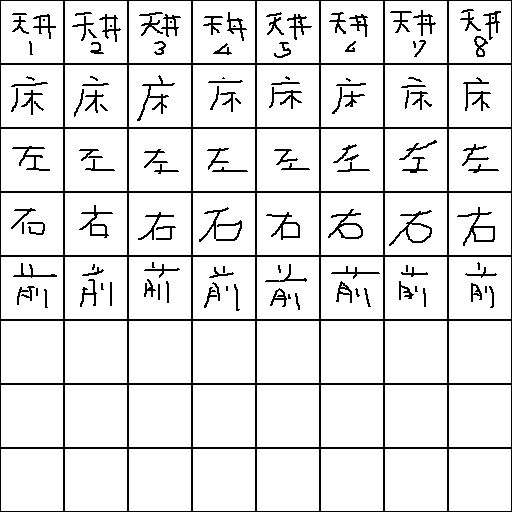 天井1 天井2 天井3 天井4 天井5 天井6 天井7 天井8
床 床 床 床 床 床 床 床
左 左 左 左 左 左 左 左
右 右 右 右 右 右 右 右
前 前 前 前 前 前 前 前